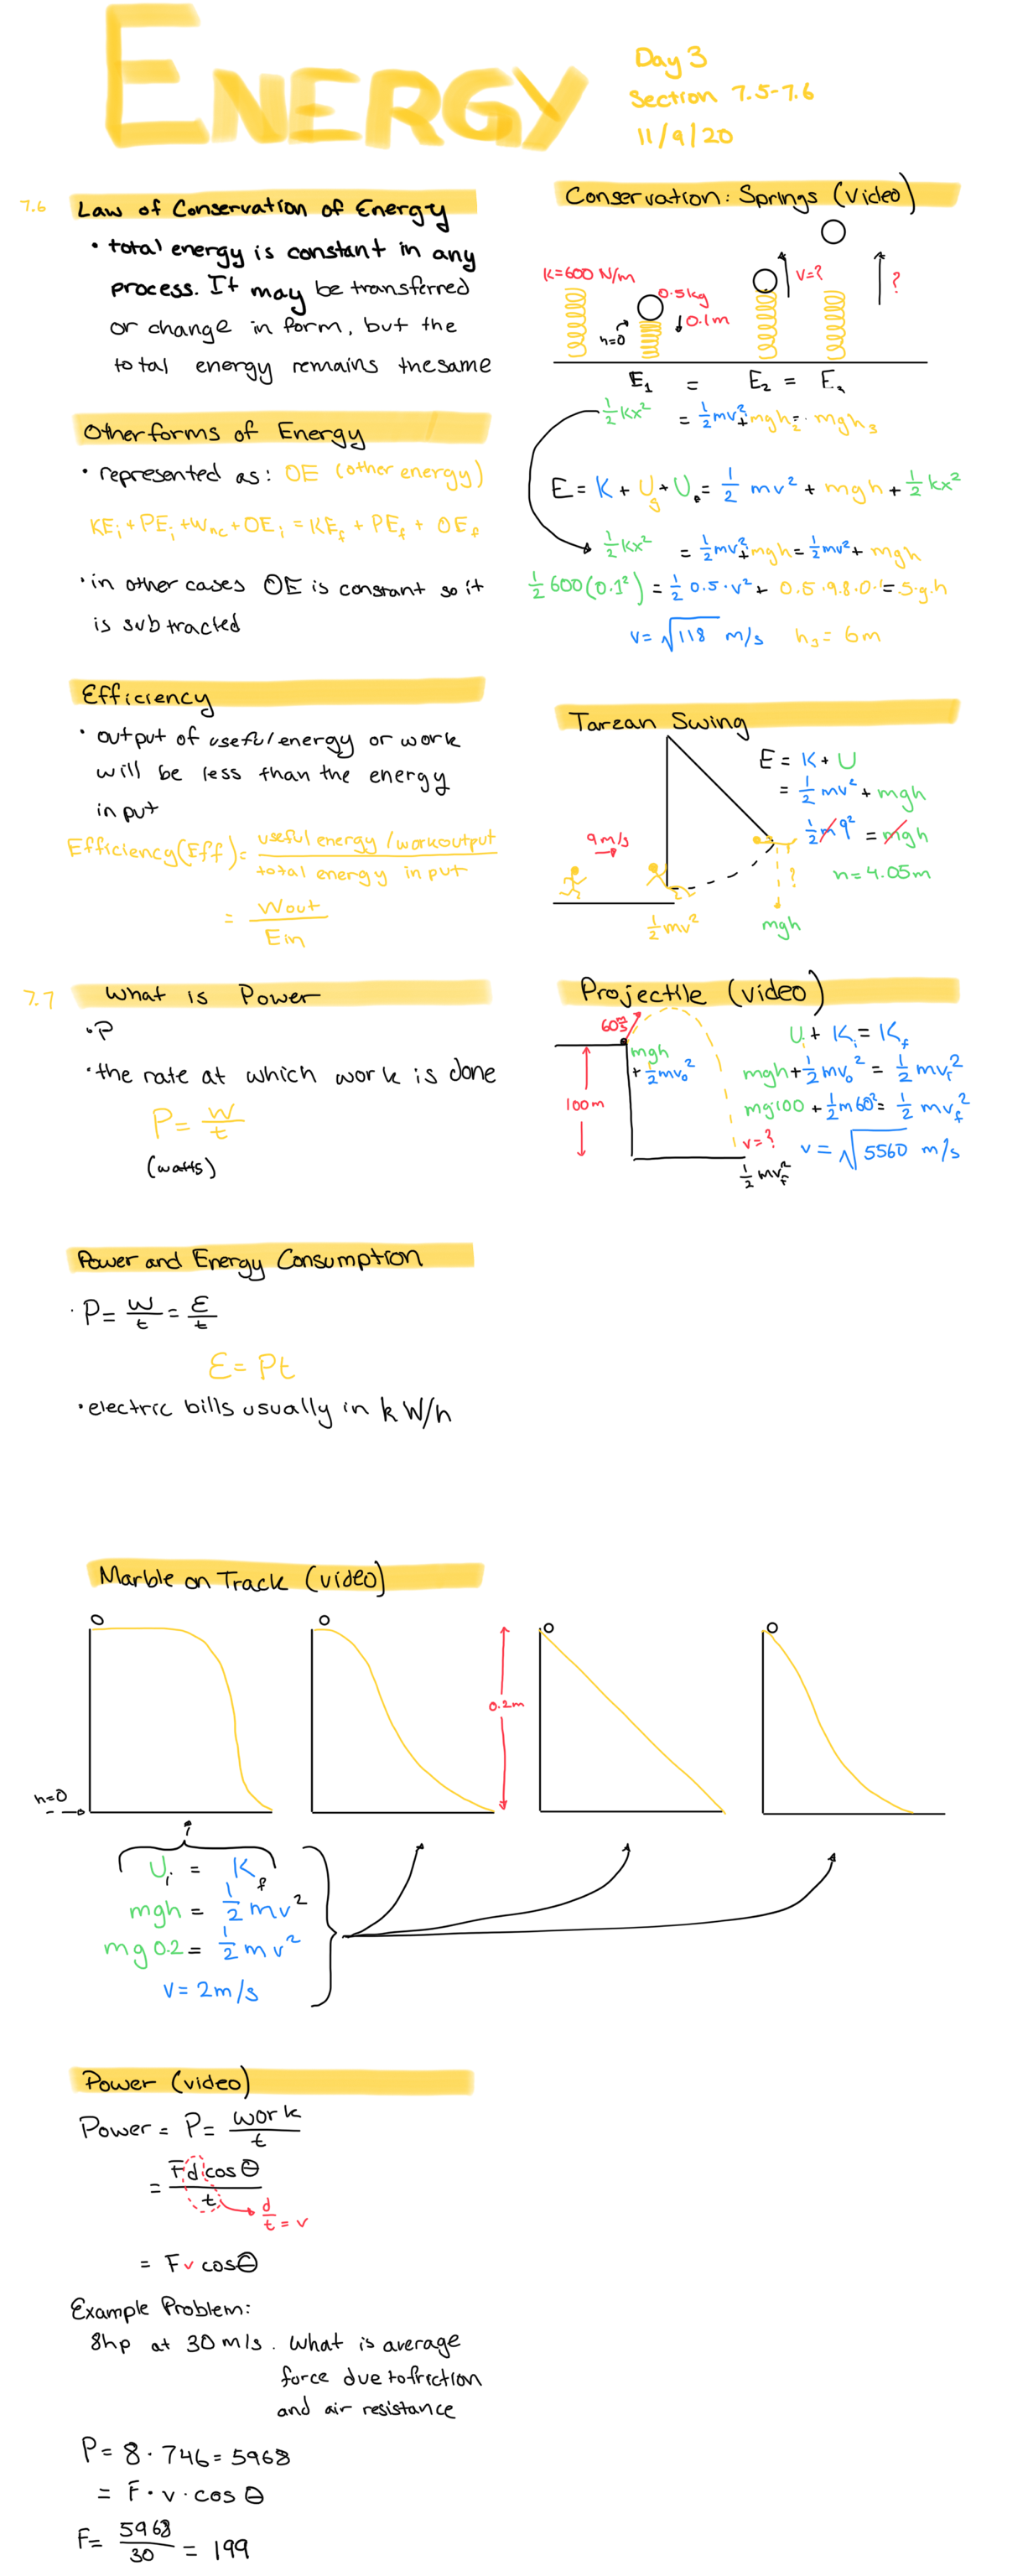 ENERGY
Day 3
Section 7.5-7.6
11/9/20
7.6
Law of Conservation of Energy
• total energy is constant in any
process. It may be transferred
or change in form, but the
total energy remains the same
Other forms of Energy
• represented as: OE (other energy)
KEᵢ + PEᵢ + Wnc + OEᵢ = KEf + PEf + OEf
• in other cases OE is constant so it
is subtracted
Efficiency
• output of useful energy or work
will be less than the energy
input
Efficiency (Eff) = useful energy / work output
total energy input
= Wout
Ein
7.7
What is Power
• P
• the rate at which work is done
P = W/t
(watts)
Power and Energy Consumption
• P = W/t = E/t
E = Pt
• electric bills usually in kW/h
Conservation: Springs (video)
K=600 N/m
0.5kg
h=0
0.1m
v=?
?
E₁ = E₂ = E₃
½kx² = ½mv² + mgh₂ = mgh₃
E = K + Ug + U = ½mv² + mgh + ½kx²
½kx² = ½mv² + mgh = ½mv² + mgh
½600(0.1²) = ½0.5·v² + 0.5·9.8·0.1 = 5·g·h
v = √118 m/s h₃ = 6m
Tarzan Swing
E = K + U
= ½mv² + mgh
9m/s
½m9² = mgh
?
h = 4.05m
½mv²
mgh
Projectile (video)
60m/s
mgh
+ ½mv₀²
100m
v=?
½mvf²
Uᵢ + Kᵢ = Kf
mgh + ½mv₀² = ½mvf²
mg100 + ½m60² = ½mvf²
v = √5560 m/s
Marble on Track (video)
0.2m
h=0
Uᵢ = Kf
mgh = ½mv²
mg0.2 = ½mv²
v = 2m/s
Power (video)
Power = P = work/t
= Fdcosθ/t
d/t = v
= Fvcosθ
Example Problem:
8hp at 30m/s. What is average
force due to friction
and air resistance
P = 8·746 = 5968
= F·v·cosθ
F = 5968/30 = 199